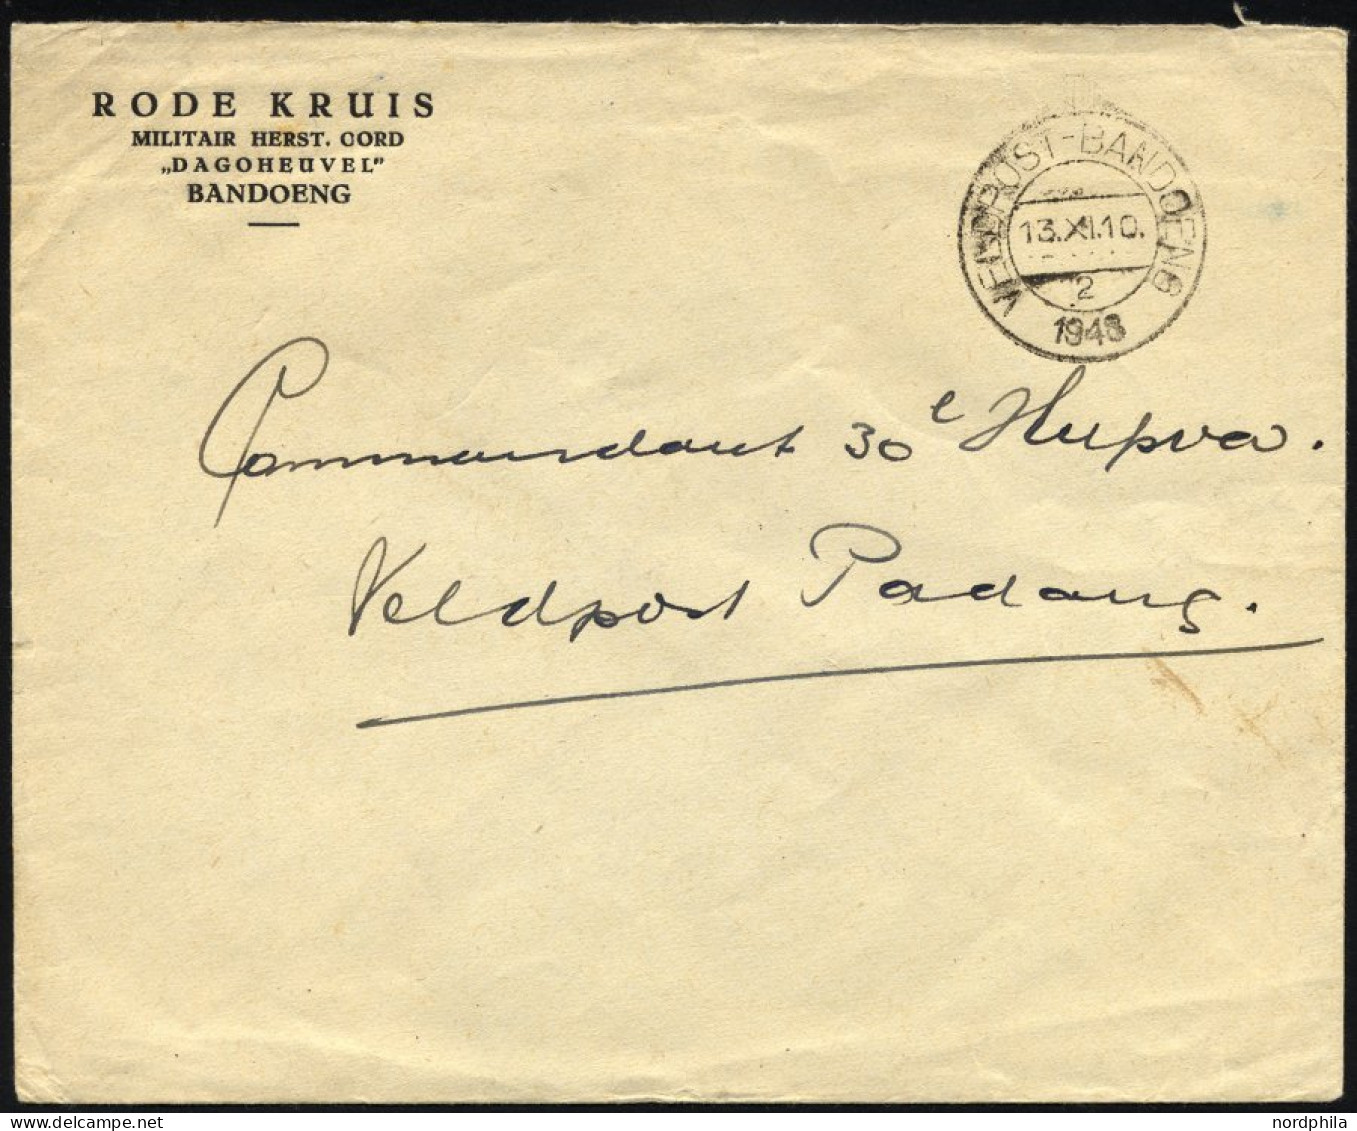 RODE KRUIS
MILITAIR HERST. OORD
„DAGOHEUVEL”
BANDOENG
VELDPOST-BANDOENG
13.XI.10.
2
1948
Commandant 30e Hupva.
Veldpost Padang.
nordphila